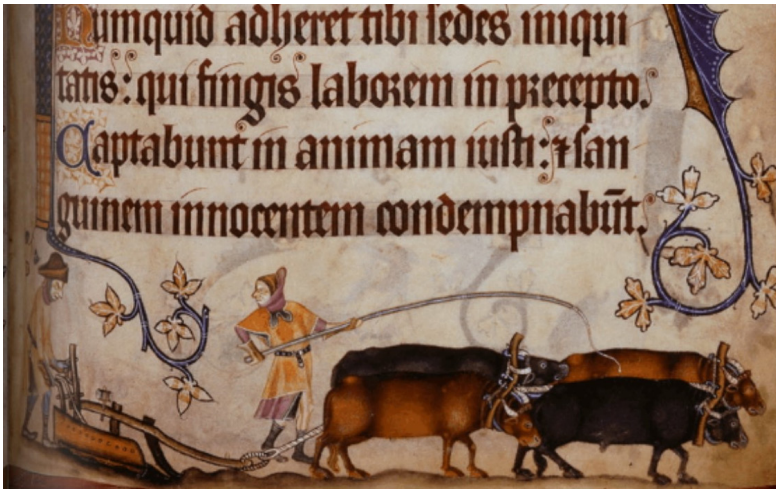 Numquid adheret tibi sedes iniqui
tatis: qui fingis laborem in precepto.
Captabunt in animam iusti: ⁊ san
guinem innocentem condempnabūt.